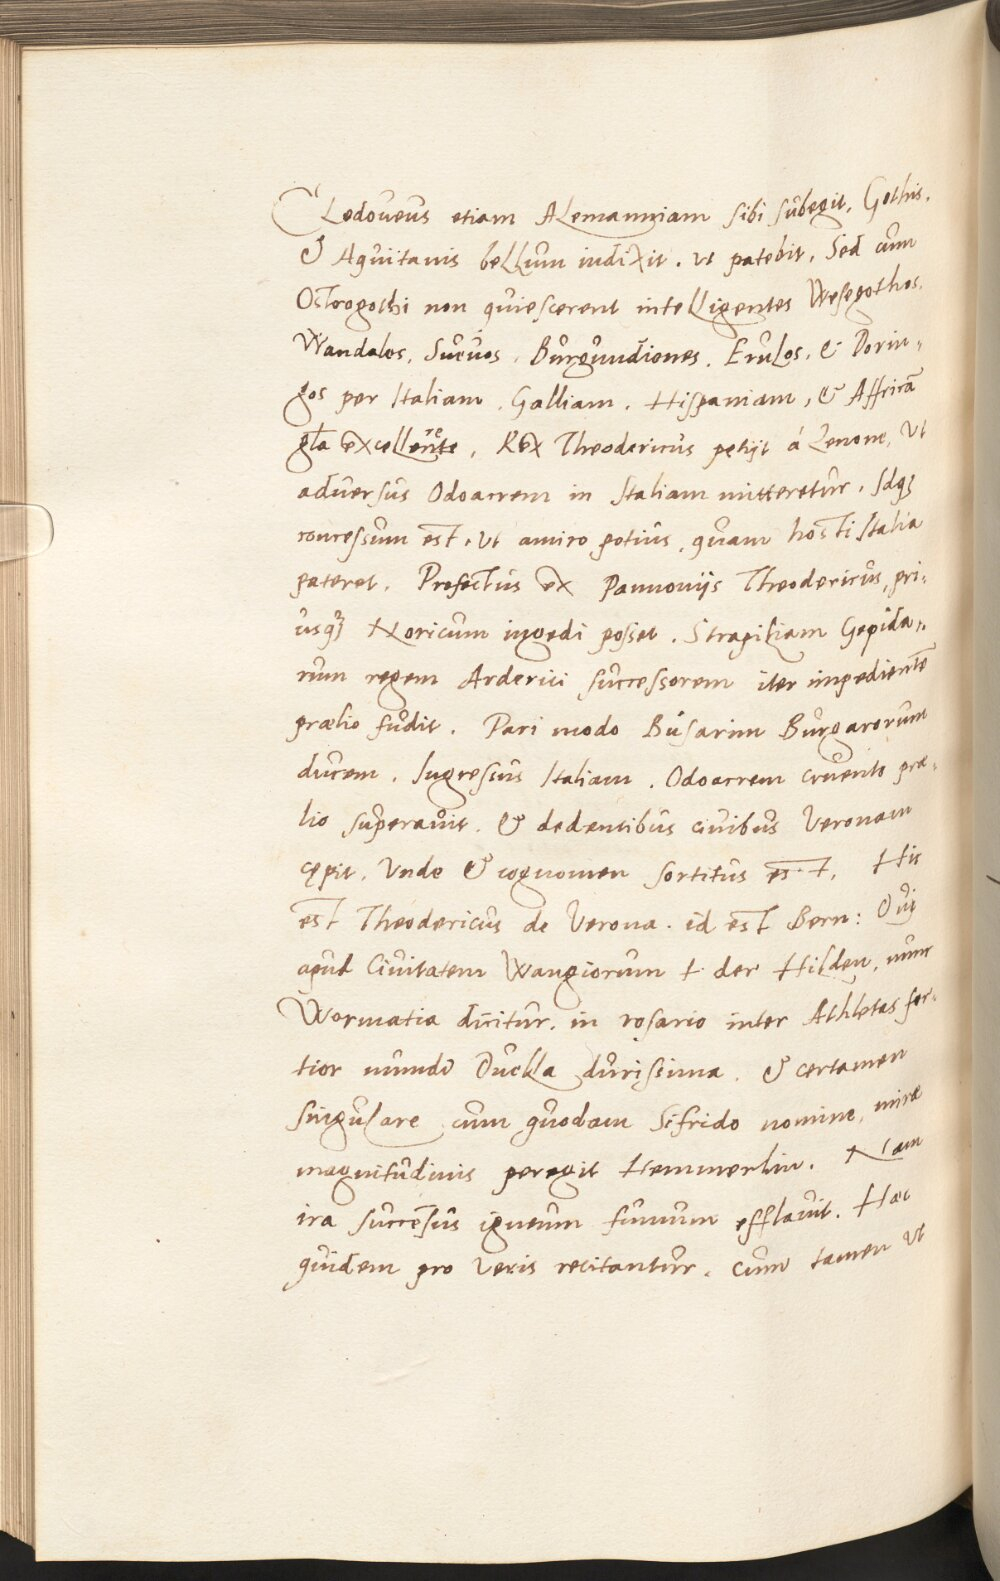 Cledoueus etiam Alemanniam sibi subegit, Gothis,
& Aquitanis bellum indixit. ut patebit, Sed cum
Ostrogothi non quiescerent intelligentes Wesegothos,
Wandalos, Sueuos, Burgundiones, Erulos, & Dorin-
gos per Italiam, Galliam, Hispaniam, & Affricā
gľa excellere, Rex Theodericus petijt á Zenone, Ut
aduersus Odoacrem in Italiam mitteretur, Idq3
concessum est, ut amico potius, quam hosti Italia
pateret. Profectus ex Pannonijs Theodericus, pri-
usq3 Noricum ingedi posset, Strapiliam Gepida-
rum regem Arderici successorem iter impedientē
prælio fudit. Pari modo Busarim Burgarorum
ducem. Ingressus Italiam, Odoacrem cruento præ-
lio superauit, & dedentibus ciuibus Veronam
cępit, Unde & cognomen sortitus est, Hic
est Theodericus de Verona. id est Bern: Qui
apud Ciuitatem Wangiorum t der Hilden, nunc
Wormatia dicitur, in rosario inter Athletas for-
tior mundi Duckla durissima, & certamen
singulare cum quodam Sifrido nomine, miræ
magnitudinis peregit Hemmerlin. Nam
ira succensus igneum fumum efflauit. Hæc
quidem pro veris recitantur, cum tamen ut